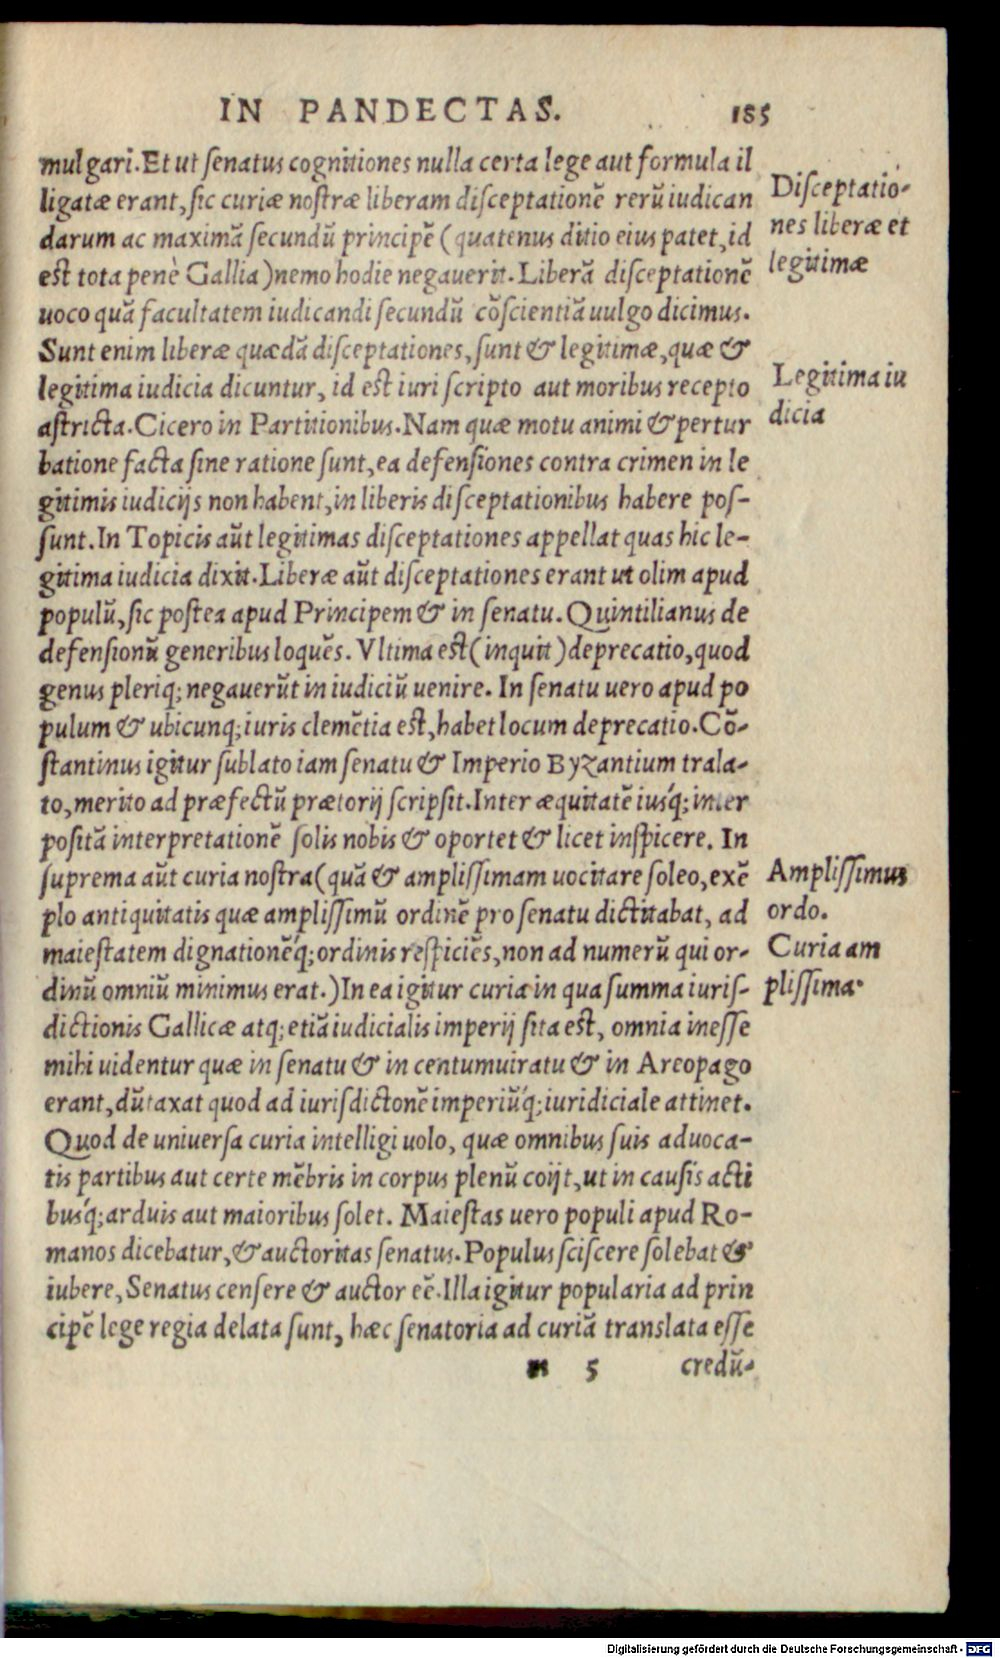 IN PANDECTAS. 185
mulgari. Et ut senatus cognitiones nulla certa lege aut formula il
ligatæ erant, sic curiæ nostræ liberam disceptationē rerū iudican
darum ac maximā secundū principē (quatenus ditio eius patet, id
est tota penè Gallia) nemo hodie negauerit. Liberā disceptationē
uoco quā facultatem iudicandi secundū cōscientiā uulgo dicimus.
Sunt enim liberæ quædā disceptationes, sunt & legitimæ, quæ &
legitima iudicia dicuntur, id est iuri scripto aut moribus recepto
astricta. Cicero in Partitionibus. Nam quæ motu animi & pertur
batione facta sine ratione sunt, ea defensiones contra crimen in le
gitimis iudicijs non habent, in liberis disceptationibus habere pos-
sunt. In Topicis aūt legitimas disceptationes appellat quas hic le-
gitima iudicia dixit. Liberæ aūt disceptationes erant ut olim apud
populū, sic postea apud Principem & in senatu. Quintilianus de
defensionū generibus loquēs. Vltima est (inquit) deprecatio, quod
genus pleriq; negauerūt in iudiciū uenire. In senatu uero apud po
pulum & ubicunq; iuris clemētia est, habet locum deprecatio. Cō-
stantinus igitur sublato iam senatu & Imperio Byzantium trala-
to, merito ad præfectū prætorij scripsit. Inter æquitatē iusq́; inter
positā interpretationē solis nobis & oportet & licet inspicere. In
suprema aūt curia nostra (quā & amplissimam uocitare soleo, exē
plo antiquitatis quæ amplissimū ordinē pro senatu dictitabat, ad
maiestatem dignationēq́; ordinis respiciēs, non ad numerū qui or-
dinū omniū minimus erat.) In ea igitur curia in qua summa iuris-
dictionis Gallicæ atq; etiā iudicialis imperij sita est, omnia inesse
mihi uidentur quæ in senatu & in centumuiratu & in Areopago
erant, dūtaxat quod ad iurisdictonē imperiūq́; iuridiciale attinet.
Quod de uniuersa curia intelligi uolo, quæ omnibus suis aduoca-
tis partibus aut certe mēbris in corpus plenū coijt, ut in causis acti
busq́; arduis aut maioribus solet. Maiestas uero populi apud Ro-
manos dicebatur, & auctoritas senatus. Populus sciscere solebat &
iubere, Senatus censere & auctor eē. Illa igitur popularia ad prin
cipē lege regia delata sunt, hæc senatoria ad curiā translata esse
m 5 credū-
Disceptatio-
nes liberæ et
legitimæ
Legitima iu
dicia
Amplissimus
ordo.
Curia am
plissima.
Digitalisierung gefördert durch die Deutsche Forschungsgemeinschaft - DFG